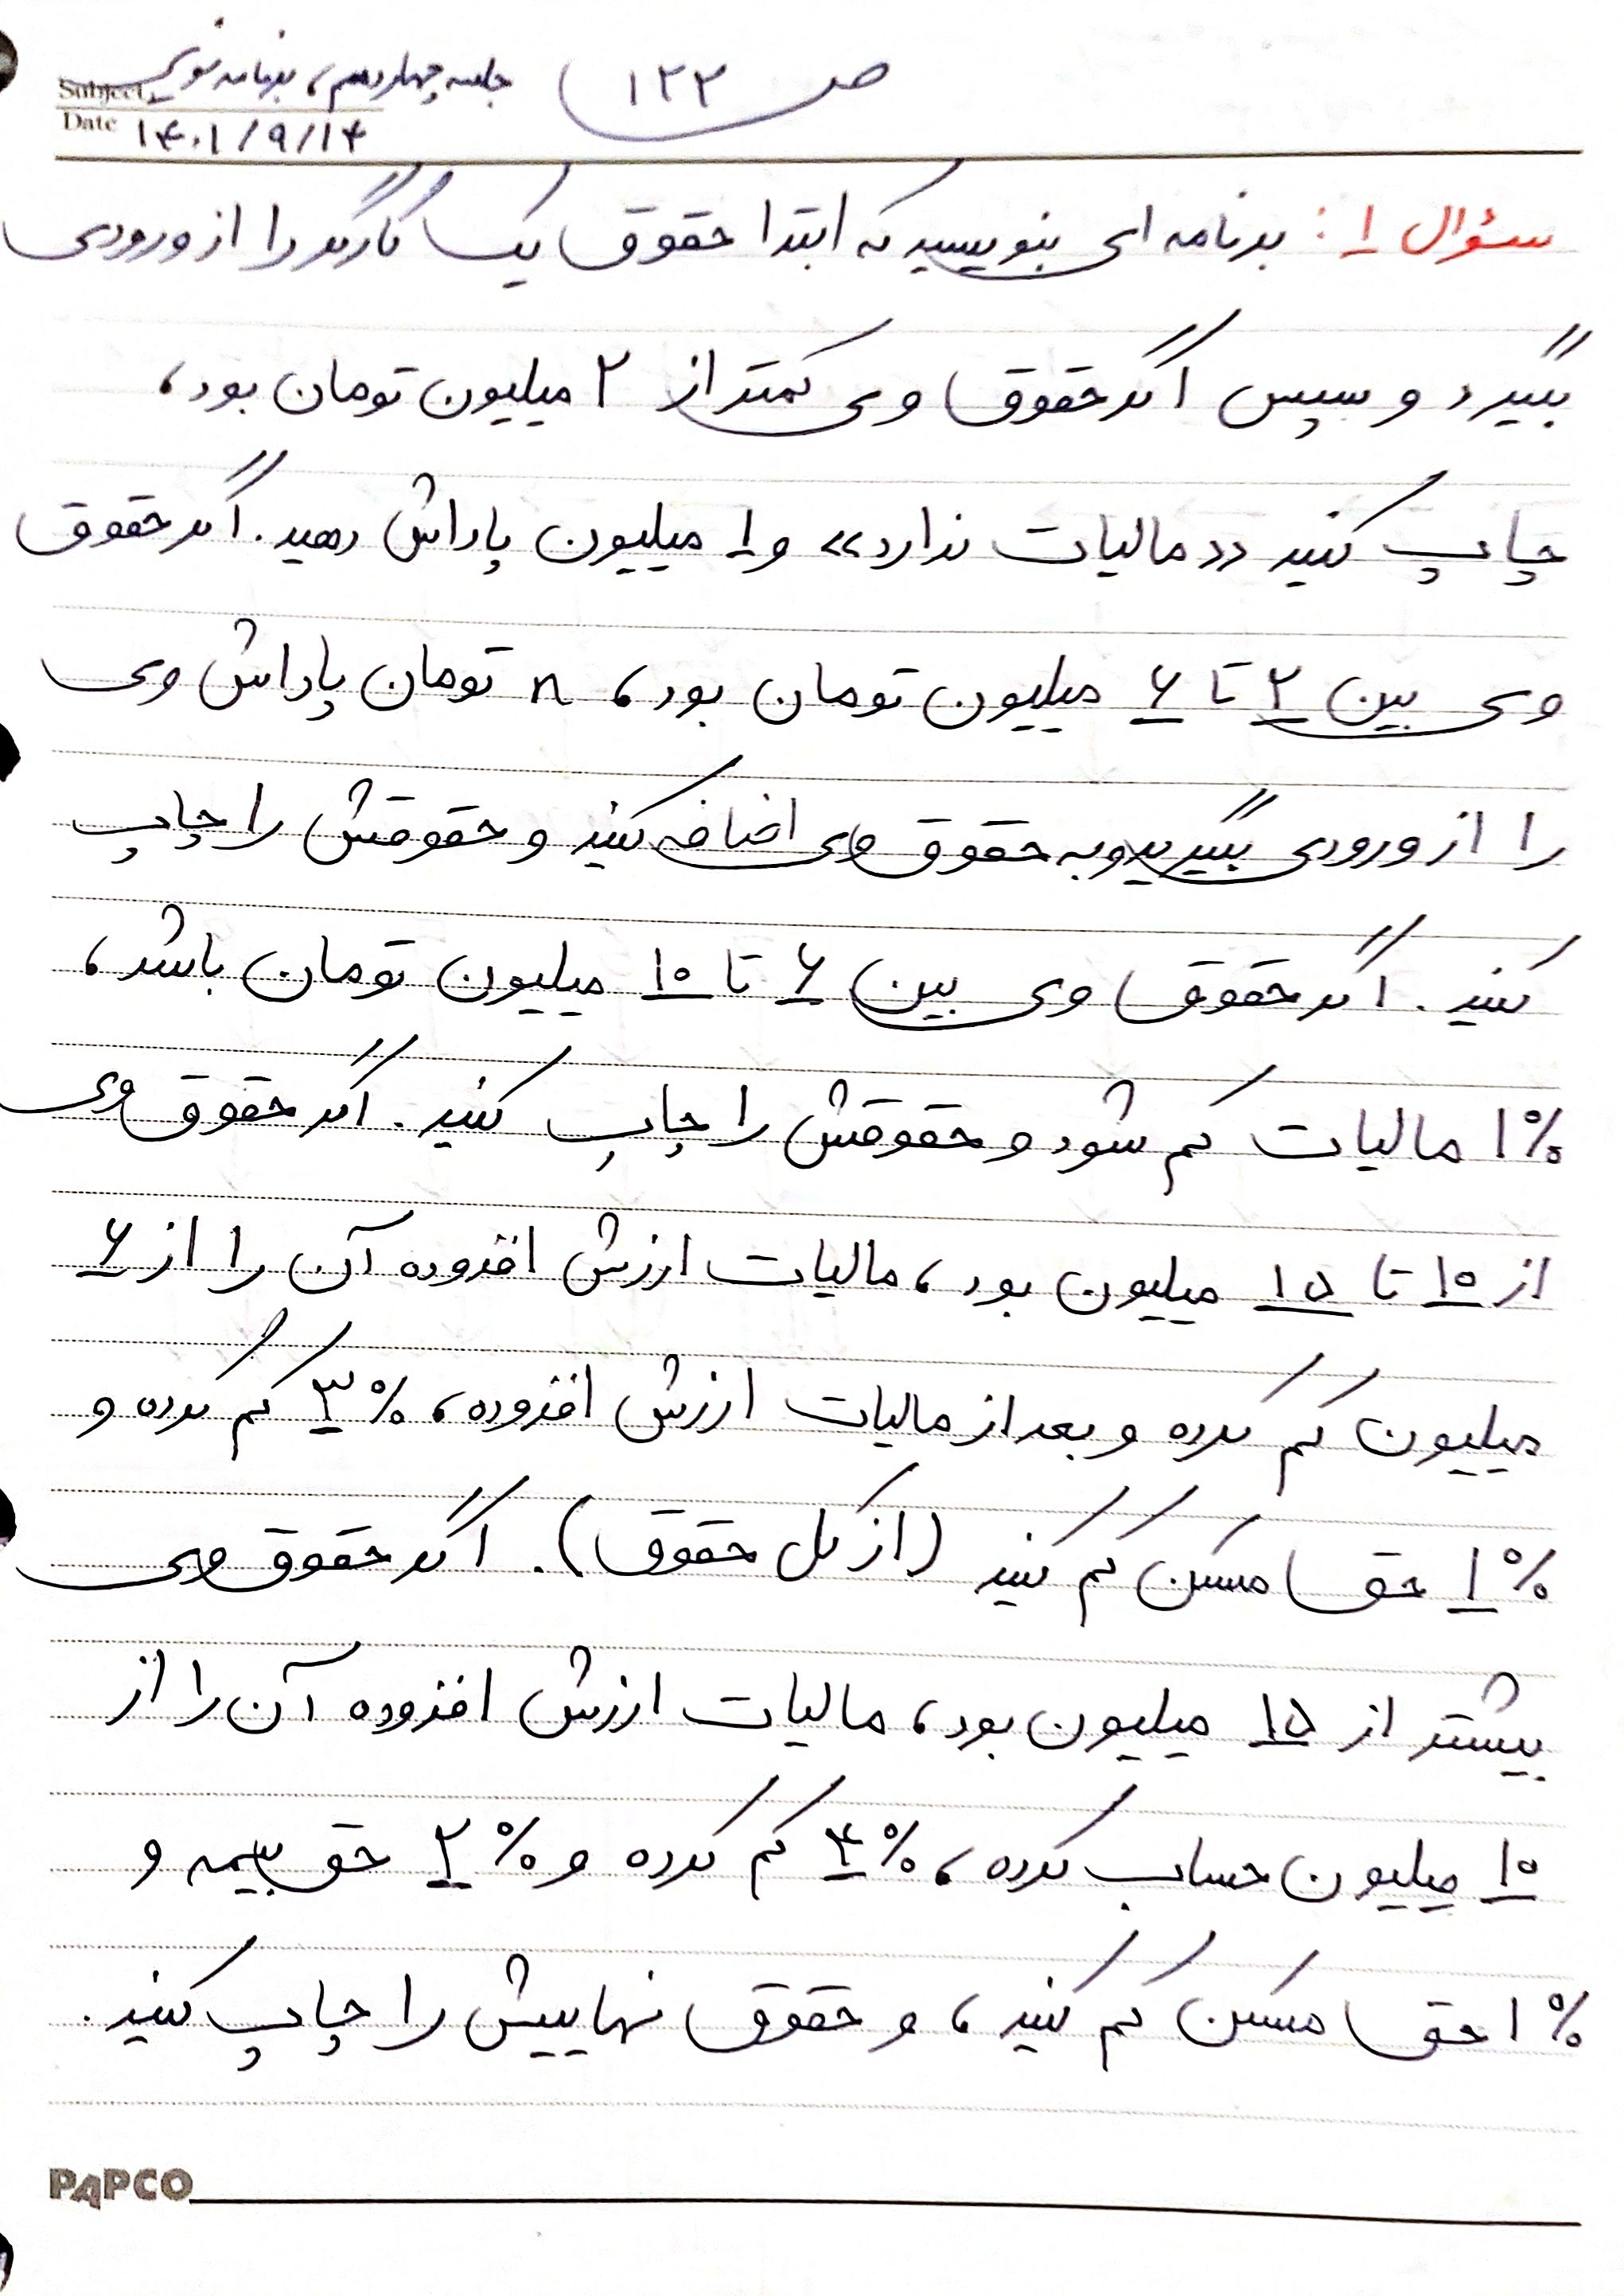 ص ۱۲۲
جلسه چهاردهم، برنامه نویسی
Subject
Date ۱۴۰۱/۹/۱۴
سؤال ۱: برنامه ای بنویسید که ابتدا حقوق یک کارگر را از ورودی
بگیرد و سپس اگر حقوق وی کمتر از ۲ میلیون تومان بود،
چاپ کنید «مالیات ندارد» و ۱ میلیون پاداش دهید. اگر حقوق
وی بین ۲ تا ۶ میلیون تومان بود، n تومان پاداش وی
را از ورودی بگیرید و به حقوق وی اضافه کنید و حقوقش را چاپ
کنید. اگر حقوق وی بین ۶ تا ۱۰ میلیون تومان باشد،
۱% مالیات کم شود و حقوقش را چاپ کنید. اگر حقوق وی
از ۱۰ تا ۱۵ میلیون بود، مالیات ارزش افزوده آن را از ۶
میلیون کم کرده و بعد از مالیات ارزش افزوده، ۳% کم کرده و
۱% حق مسکن کم کنید (از کل حقوق). اگر حقوق وی
بیشتر از ۱۵ میلیون بود، مالیات ارزش افزوده آن را از
۱۰ میلیون حساب کرده، ۴% کم کرده و ۲% حق بیمه و
۱% حق مسکن کم کنید، و حقوق نهاییش را چاپ کنید.
PAPCO